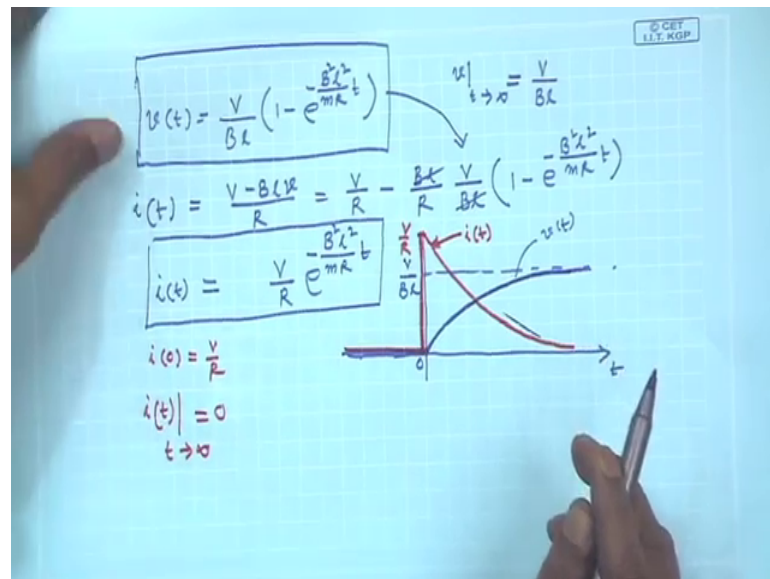 © CET
I.I.T. KGP
v(t) = V/Bl (1 - e^(-B²l²/mR t))
v|t→∞ = V/Bl
i(t) = (V-Blv)/R = V/R - Bl/R V/Bl (1 - e^(-B²l²/mR t))
i(t) = V/R e^(-B²l²/mR t)
V/R
i(t)
v(t)
V/Bl
i(0) = V/R
0
t
i(t)|t→∞ = 0